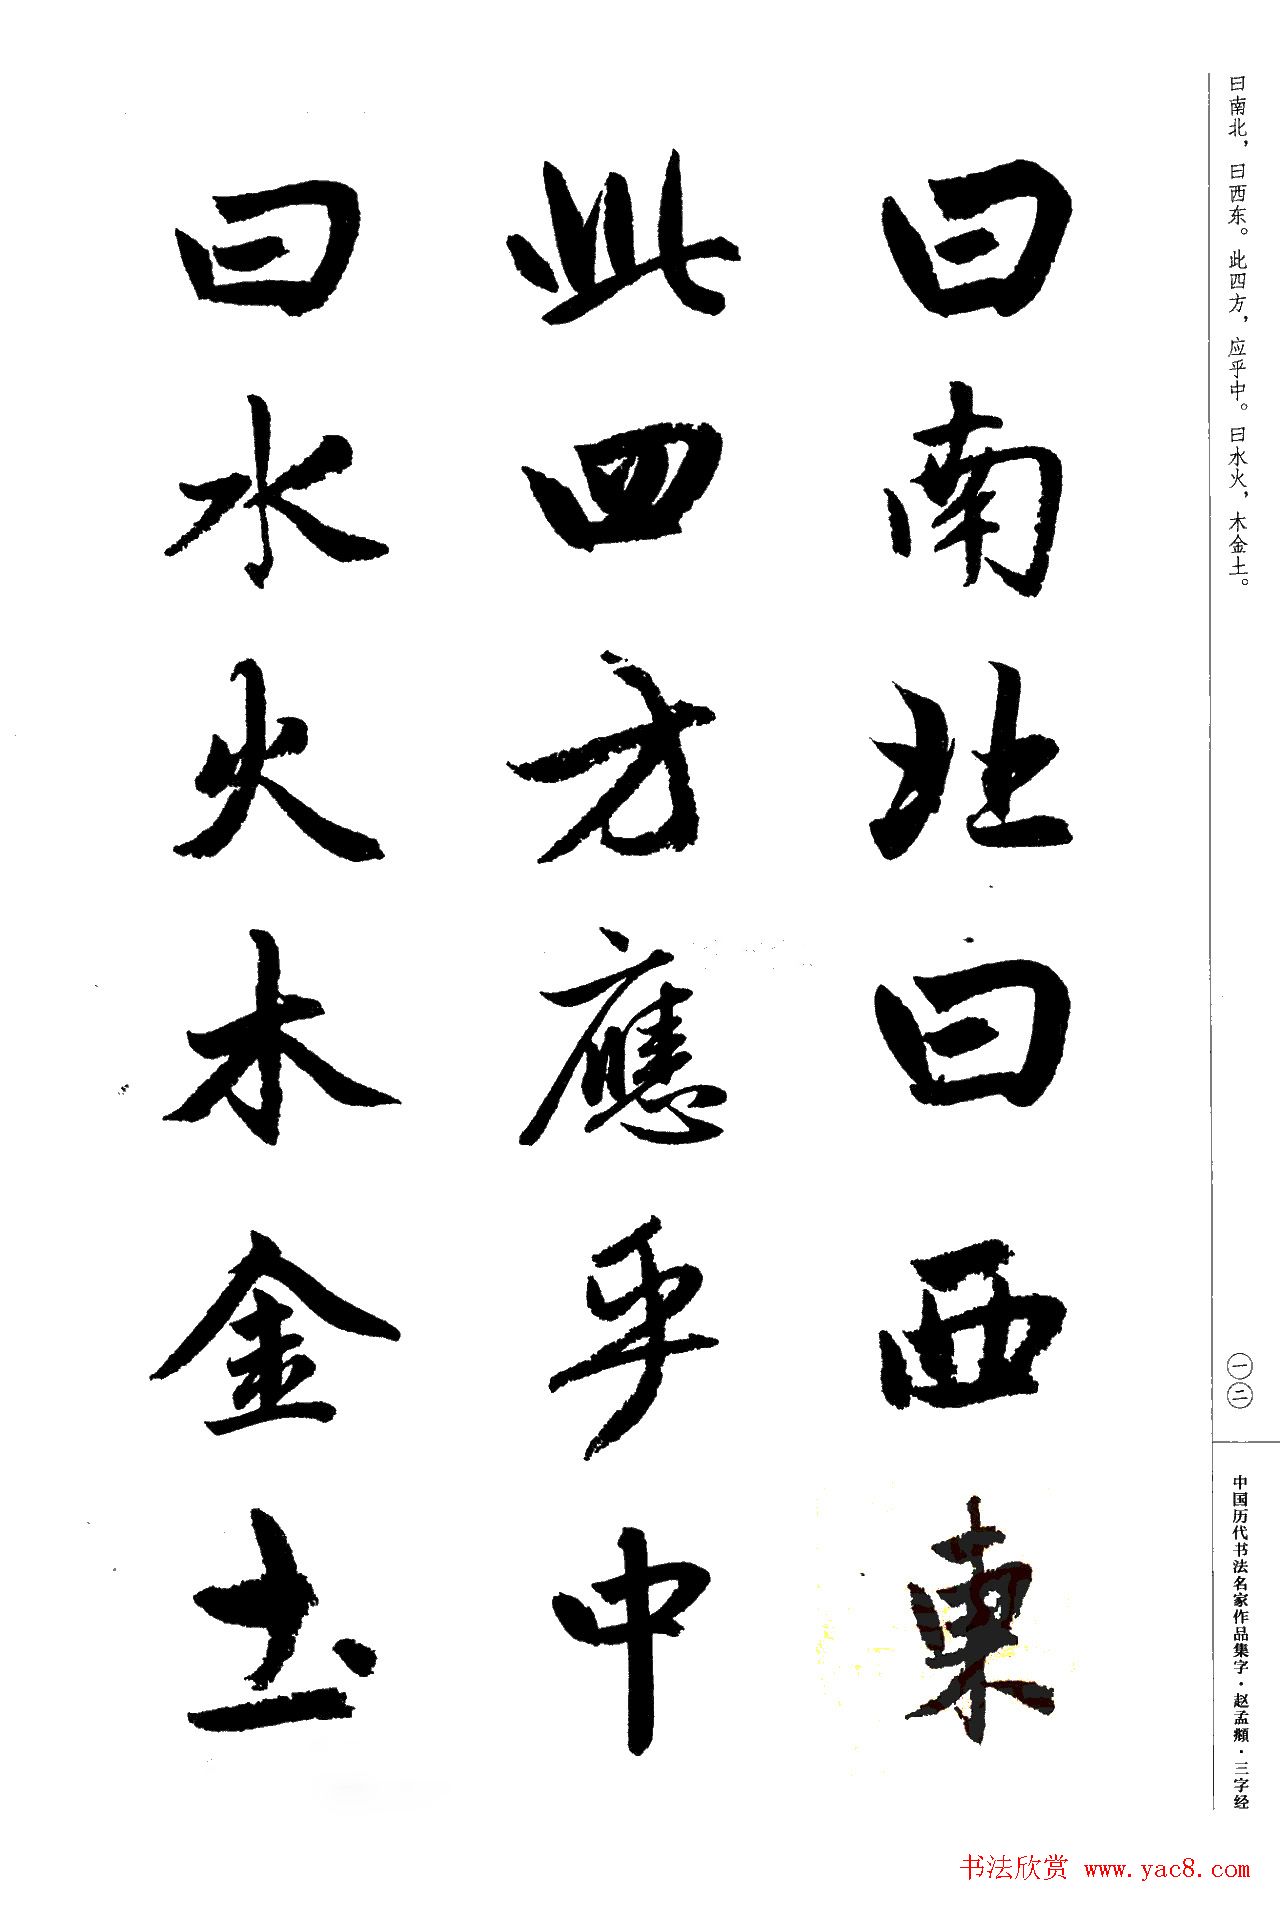 曰南北，曰西东。此四方，应乎中。曰水火，木金土。
一二
中国历代书法名家作品集字·赵孟頫·三字经
曰南北曰西東
此四方應乎中
曰水火木金土
书法欣赏 www.yac8.com